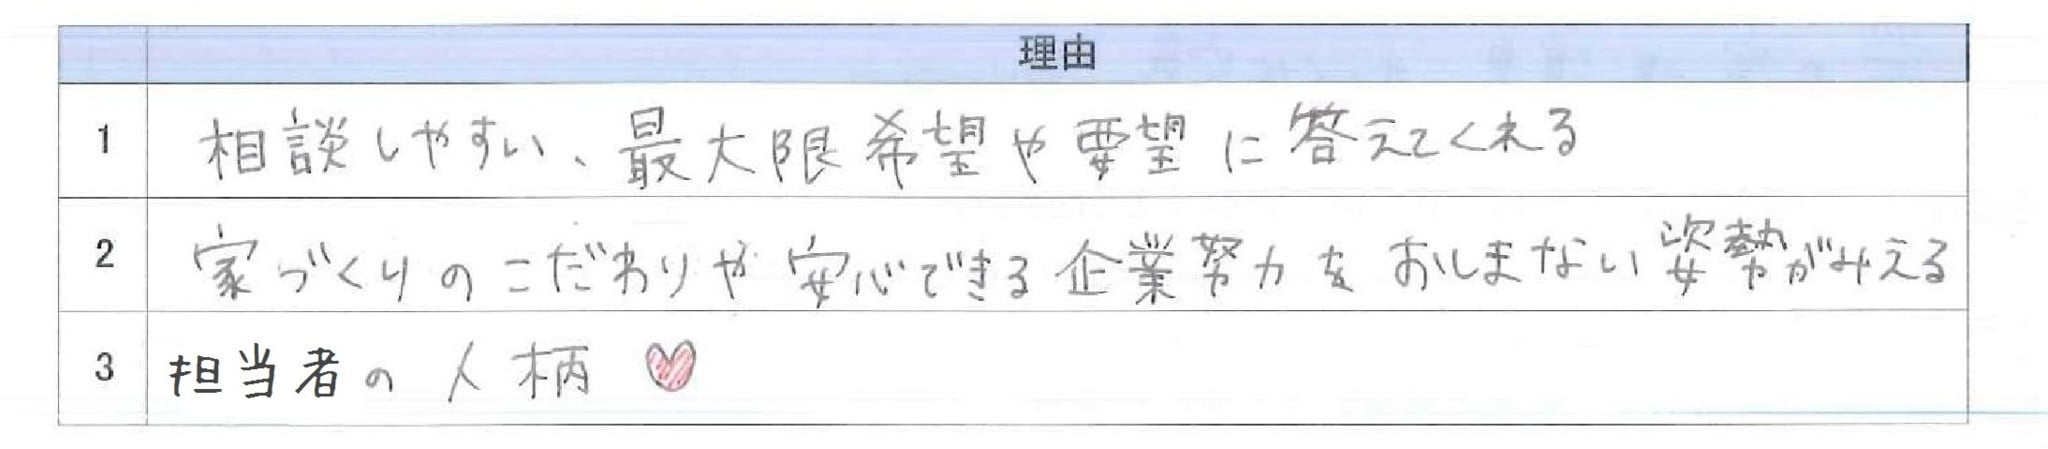 理由
1 相談しやすい、最大限希望や要望に答えてくれる
2 家づくりのこだわりや安心できる企業努力をおしまない姿勢がみえる
3 担当者の人柄